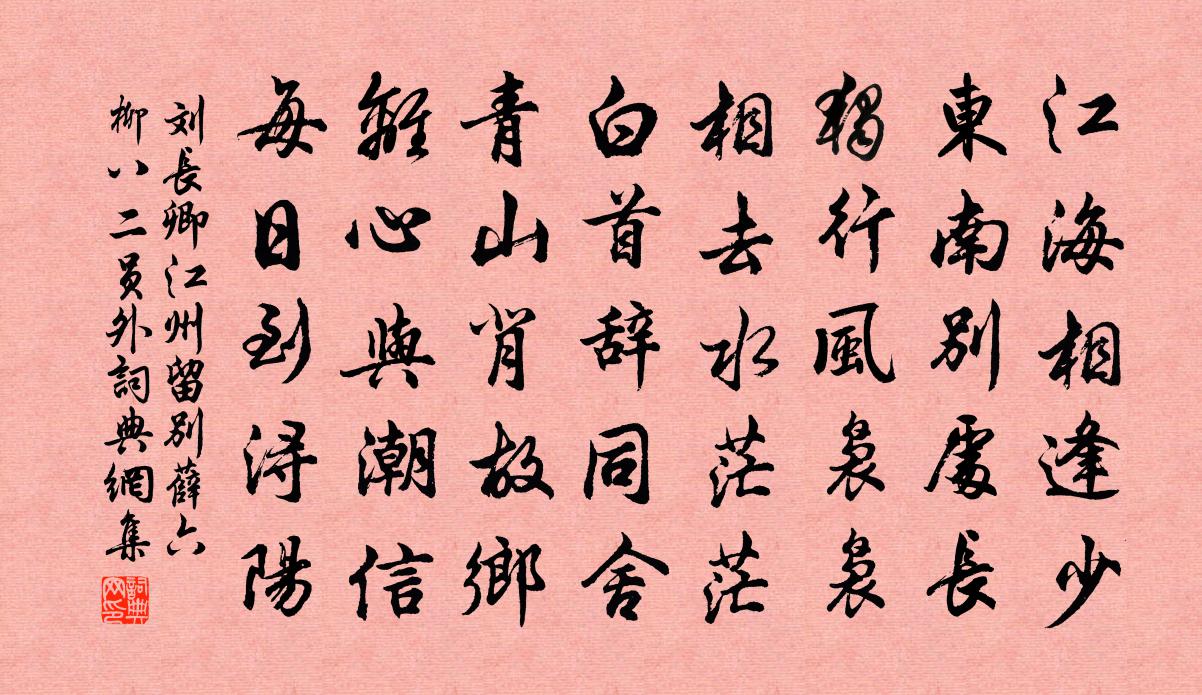 江海相逢少
東南別處長
獨行風袅袅
相去水茫茫
白首辞同舍
青山背故鄉
離心與潮信
每日到浔陽
刘長卿江州留別薛六
柳八二员外詞典網集
詞典网印